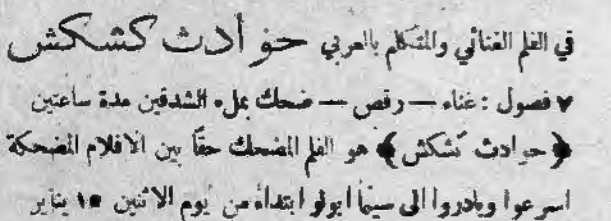 في الفلم الغنائي والمتكلم بالعربي حوادث كشكش
٧ فصول : غناء — رقص — ضحك بملء الشدقين مدة ساعتين
﴿ حوادث كشكش ﴾ هو الفلم المضحك حقاً بين الافلام المضحكة
اسرعوا وبادروا الى سينما ابولو ابتداء من يوم الاثنين ١٥ يناير